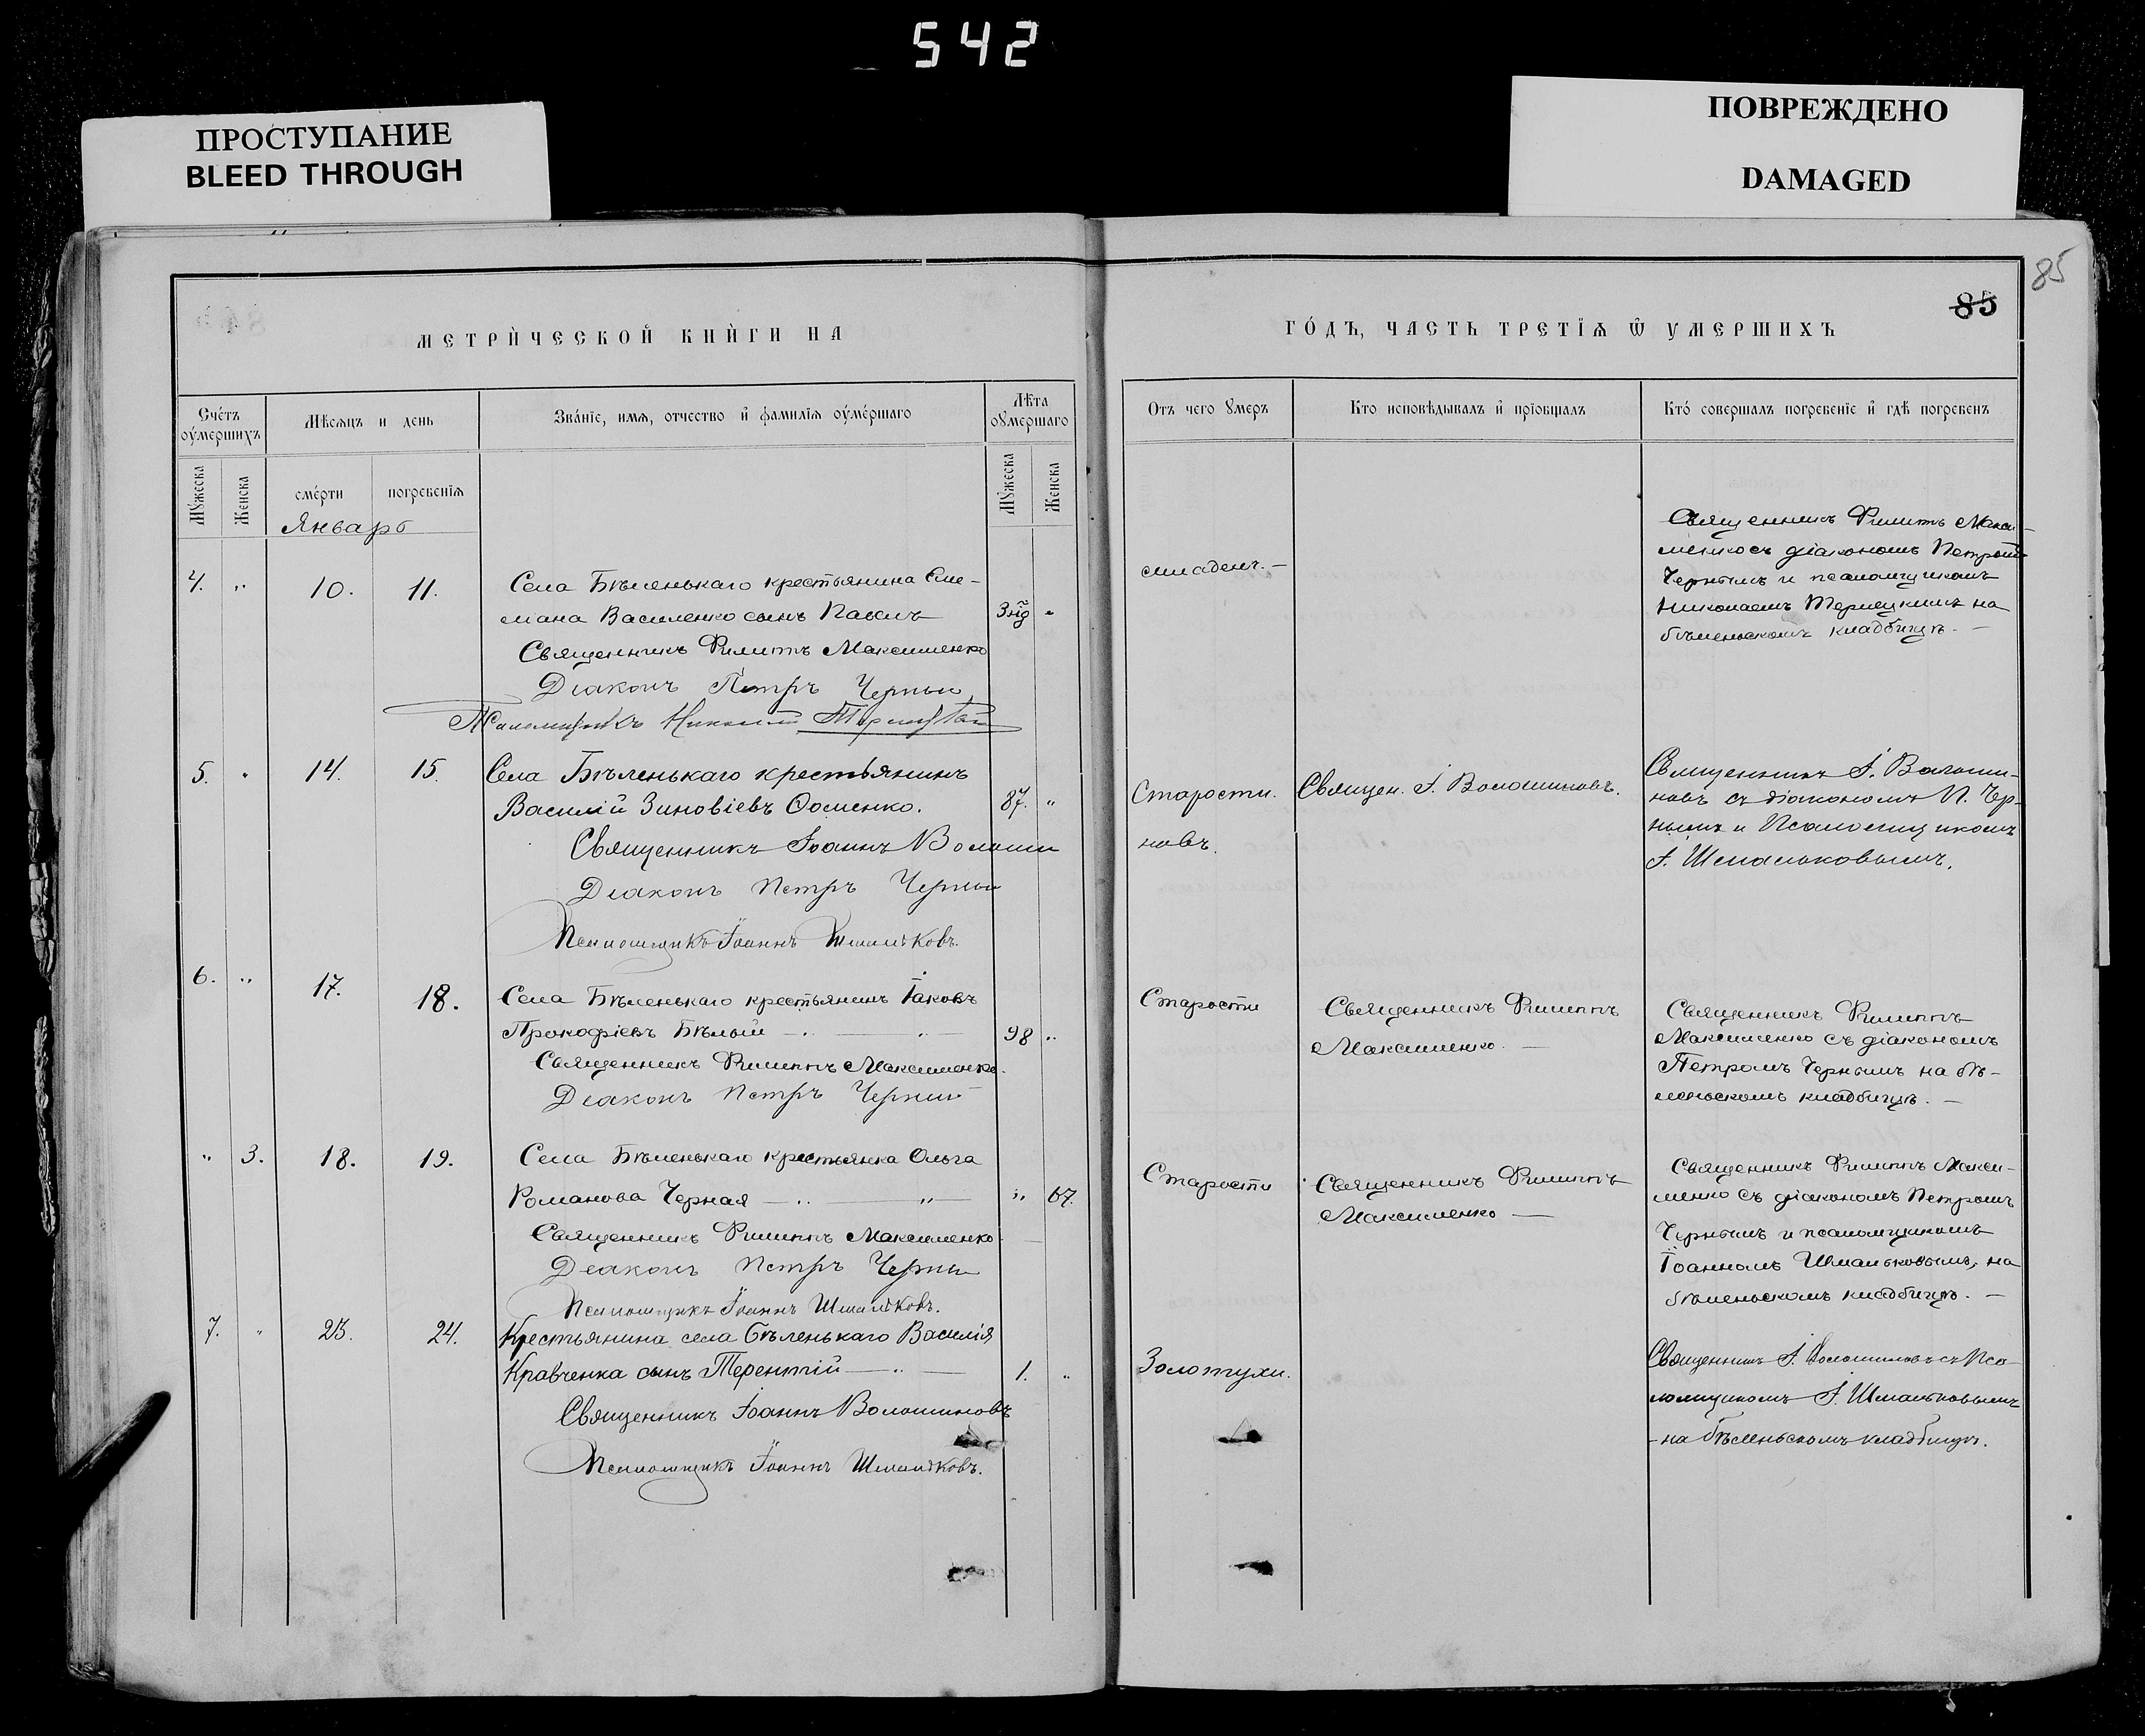 542
ПРОСТУПАНИЕ
BLEED THROUGH
ПОВРЕЖДЕНО
DAMAGED
85
85
МЕТРИЧЕСКОЙ КНИГИ НА
ГОДЪ, ЧАСТЬ ТРЕТІЯ Ѿ УМЕРШИХЪ
Счетъ оумершихъ
Мѣсяцъ и день
Званіе, имя, отчество и фамилія оумершаго
Лѣта оумершаго
Отъ чего умеръ
Кто исповѣдывалъ и пріобщалъ
Кто совершалъ погребеніе и гдѣ погребенъ
Мужеска
Женска
смерти
погребенія
Мужеска
Женска
Январь
4. " 10. 11.
Села Бѣленькаго крестьянина Еме-
лiана Василенко сынъ Павелъ
3 нд "
Священникъ Филиппъ Максименко
Діаконъ Петръ Черный
Псаломщикъ Николай
младенч. —
Священникъ Филиппъ Макси-
менко съ діакономъ Петромъ
Чернымъ и псаломщикомъ
Николаемъ на
бѣленьскомъ кладбищѣ. —
5. " 14. 15.
Села Бѣленькаго крестьянинъ
Василій Зиновіевъ Ѳоменко.
87. "
Священникъ Іоаннъ Волоши
новъ.
Діаконъ Петръ Черный
Псаломщикъ Іоаннъ Шмальковъ.
Старости.
Священ. І. Волошиновъ.
Священникъ І. Волоши-
новъ съ діакономъ П. Чер-
нымъ и Псаломщикомъ
І. Шмальковымъ.
6. " 17. 18.
Села Бѣленькаго крестьянинъ Іаковъ
Прокофіевъ Бѣлый — " — " —
98 "
Священникъ Филиппъ Максименко.
Діаконъ Петръ Черный
Старости
Священникъ Филиппъ
Максименко. —
Священникъ Филиппъ
Максименко съ діакономъ
Петромъ Чернымъ на бѣ-
леньскомъ кладбищѣ. —
" 3. 18. 19.
Села Бѣленькаго крестьянка Ольга
Романова Черная — " — " —
" 67.
Священникъ Филиппъ Максименко
Діаконъ Петръ Черный
Псаломщикъ Іоаннъ Шмальковъ.
Старости
Священникъ Филиппъ
Максименко —
Священникъ Филиппъ Макси-
менко съ діакономъ Петромъ
Чернымъ и псаломщикомъ
Іоанномъ Шмальковымъ, на
бѣленьскомъ кладбищѣ. —
7. " 23. 24.
Крестьянина села Бѣленькаго Василія
Кравченка сынъ Терентій — " —
1. "
Священникъ Іоаннъ Волошиновъ
Псаломщикъ Іоаннъ Шмальковъ.
Золотухи.
Священникъ І. Волошиновъ съ Пса-
ломщикомъ І. Шмальковымъ
-на бѣленьскомъ кладбищѣ.